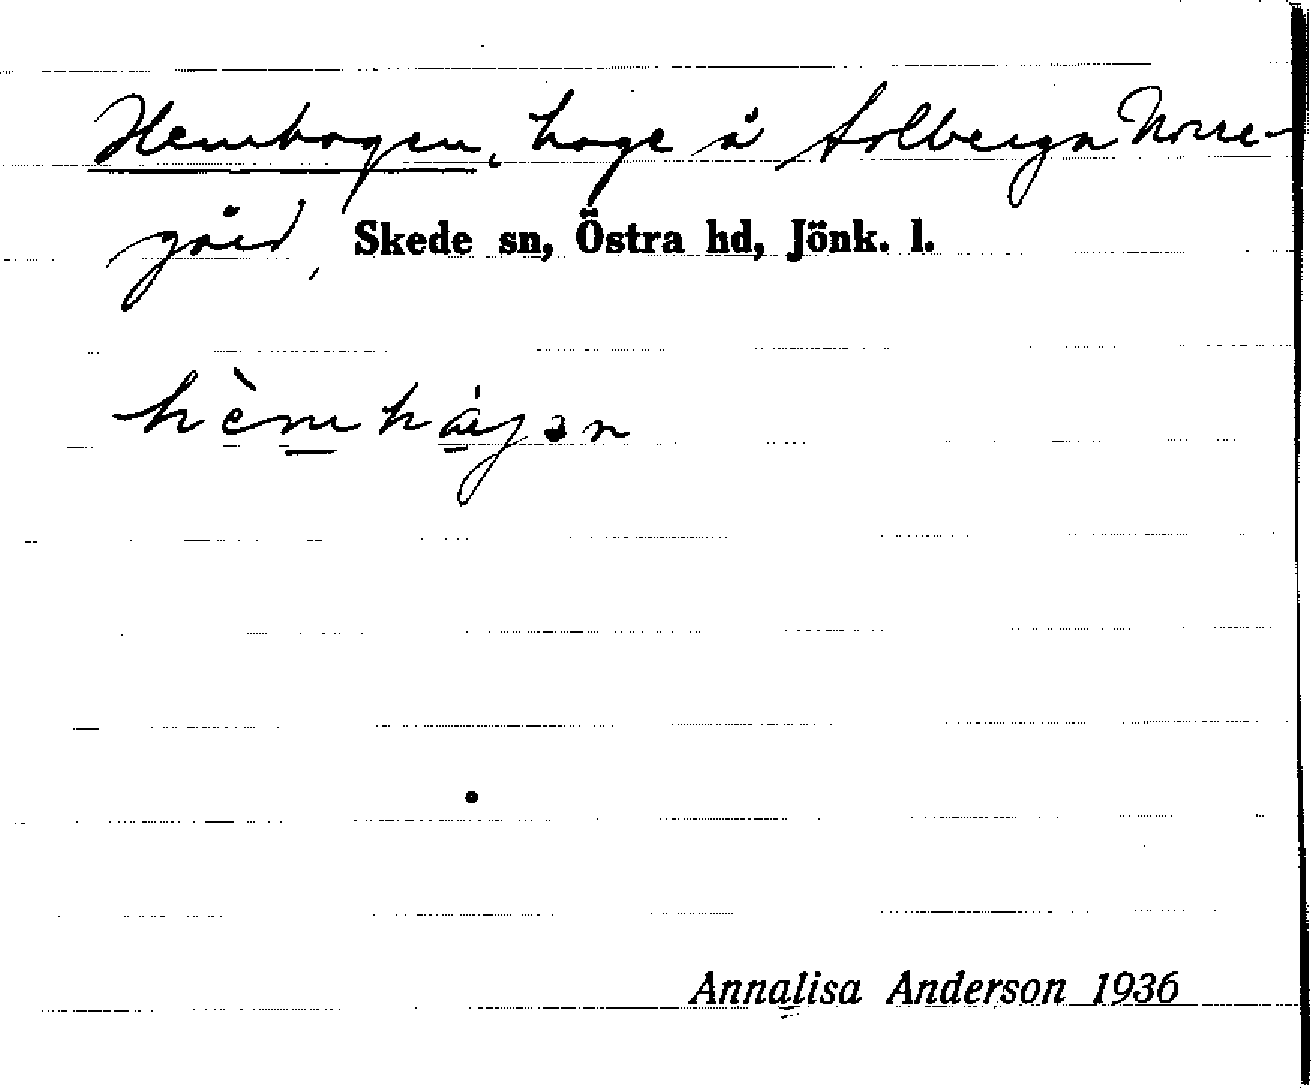 Hemhagen, hage å Solberga Norre-
gård, Skede sn, Östra hd, Jönk. l.
hèmhágən
Annalisa Anderson 1936